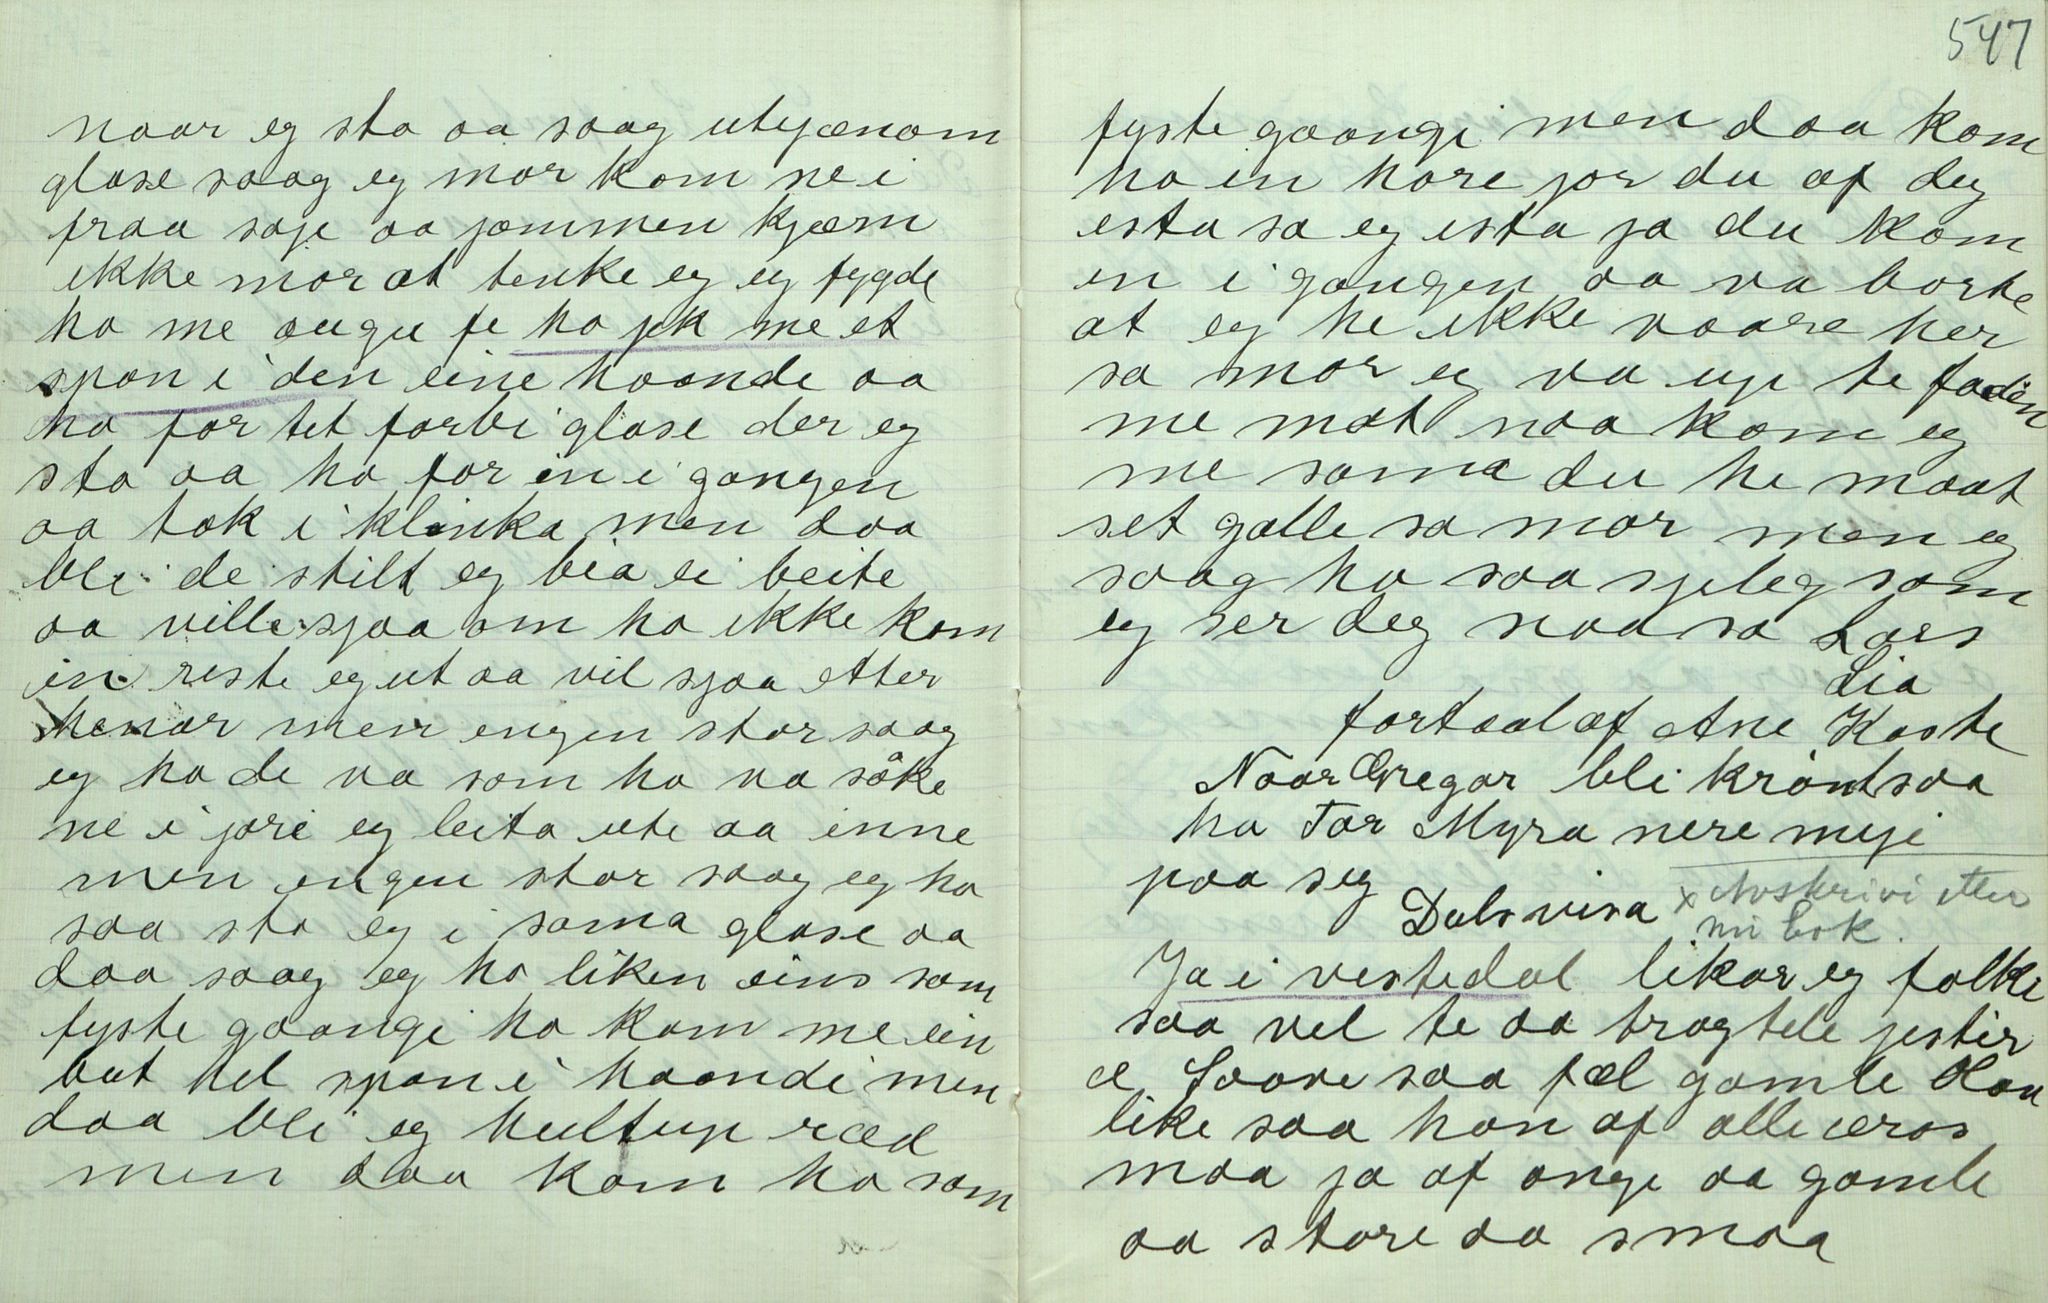 naar eg sto aa saag utgjænom
glase saag eg mor kom ne i
fraa soje aa jammen kjæm
ikke mor at tenke eg eg fygde
ho me augu fe ho jek me et
spon i den eine haande aa
ho for tet forbi glase der eg
sto aa ho for in i gangen
aa tok i klinka men daa
bli de stilt eg bia ei beite
aa ville sjaa om ho ikke kom
in reste eg ut aa vil sjaa etter
henar men engen star saag
eg ho de va som ho va søke
ne i jore eg leita ute aa inne
men engen star saag eg ho
saa sto eg i sama glase aa
daa saag eg ho liken eins som
fyste gaangi ho kom me ein
but hel spon i haandi men
daa bli eg heiltup ræd
men daa kom ho som
547
fyste gaangi men daa kom
ho in hore jor du af deg
esta sa eg esta ja du kom
in i gangen aa va borte
at eg he ikke vaare her
sa mor eg va up te fadin
me mat naa kom eg
me sama du he maat
set galle sa mor men eg
saag ho saa sjeleg som
eg ser deg naa sa Lars
Lia
fortaal af Ane Kaste
Naar Gregar bli krønt saa
ha Tor Myra nere myji
paa seg
Dalsvisa x Avskrivi etter
mi bok.
Ja i vestedal likar eg folke
saa vel te aa tragtele jestir
e Saave saa fæl gamle Olav
like saa han af alle æros
maa ja af onge aa gamle
aa store aa smaa